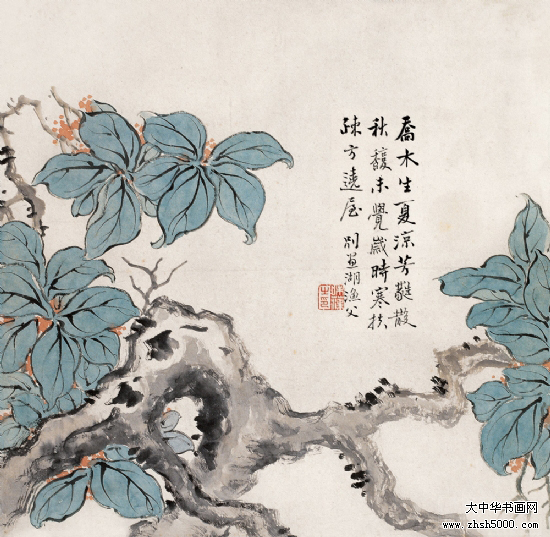 喬木生夏涼芳蕤散
秋馥未覺歲時寒扶
疎方遶屋
湖漁父
大中华书画网
www.zhsh5000.com